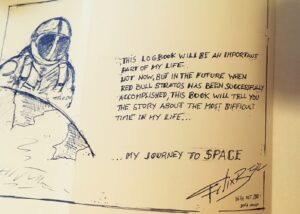 ...THIS LOGBOOK WILL BE AN IMPORTANT
PART OF MY LIFE.
NOT NOW, BUT IN THE FUTURE WHEN
RED BULL STRATOS HAS BEEN SUCCESSFULLY
ACCOMPLISHED, THIS BOOK WILL TELL YOU
THE STORY ABOUT THE MOST DIFFICULT
TIME IN MY LIFE...
...MY JOURNEY TO SPACE